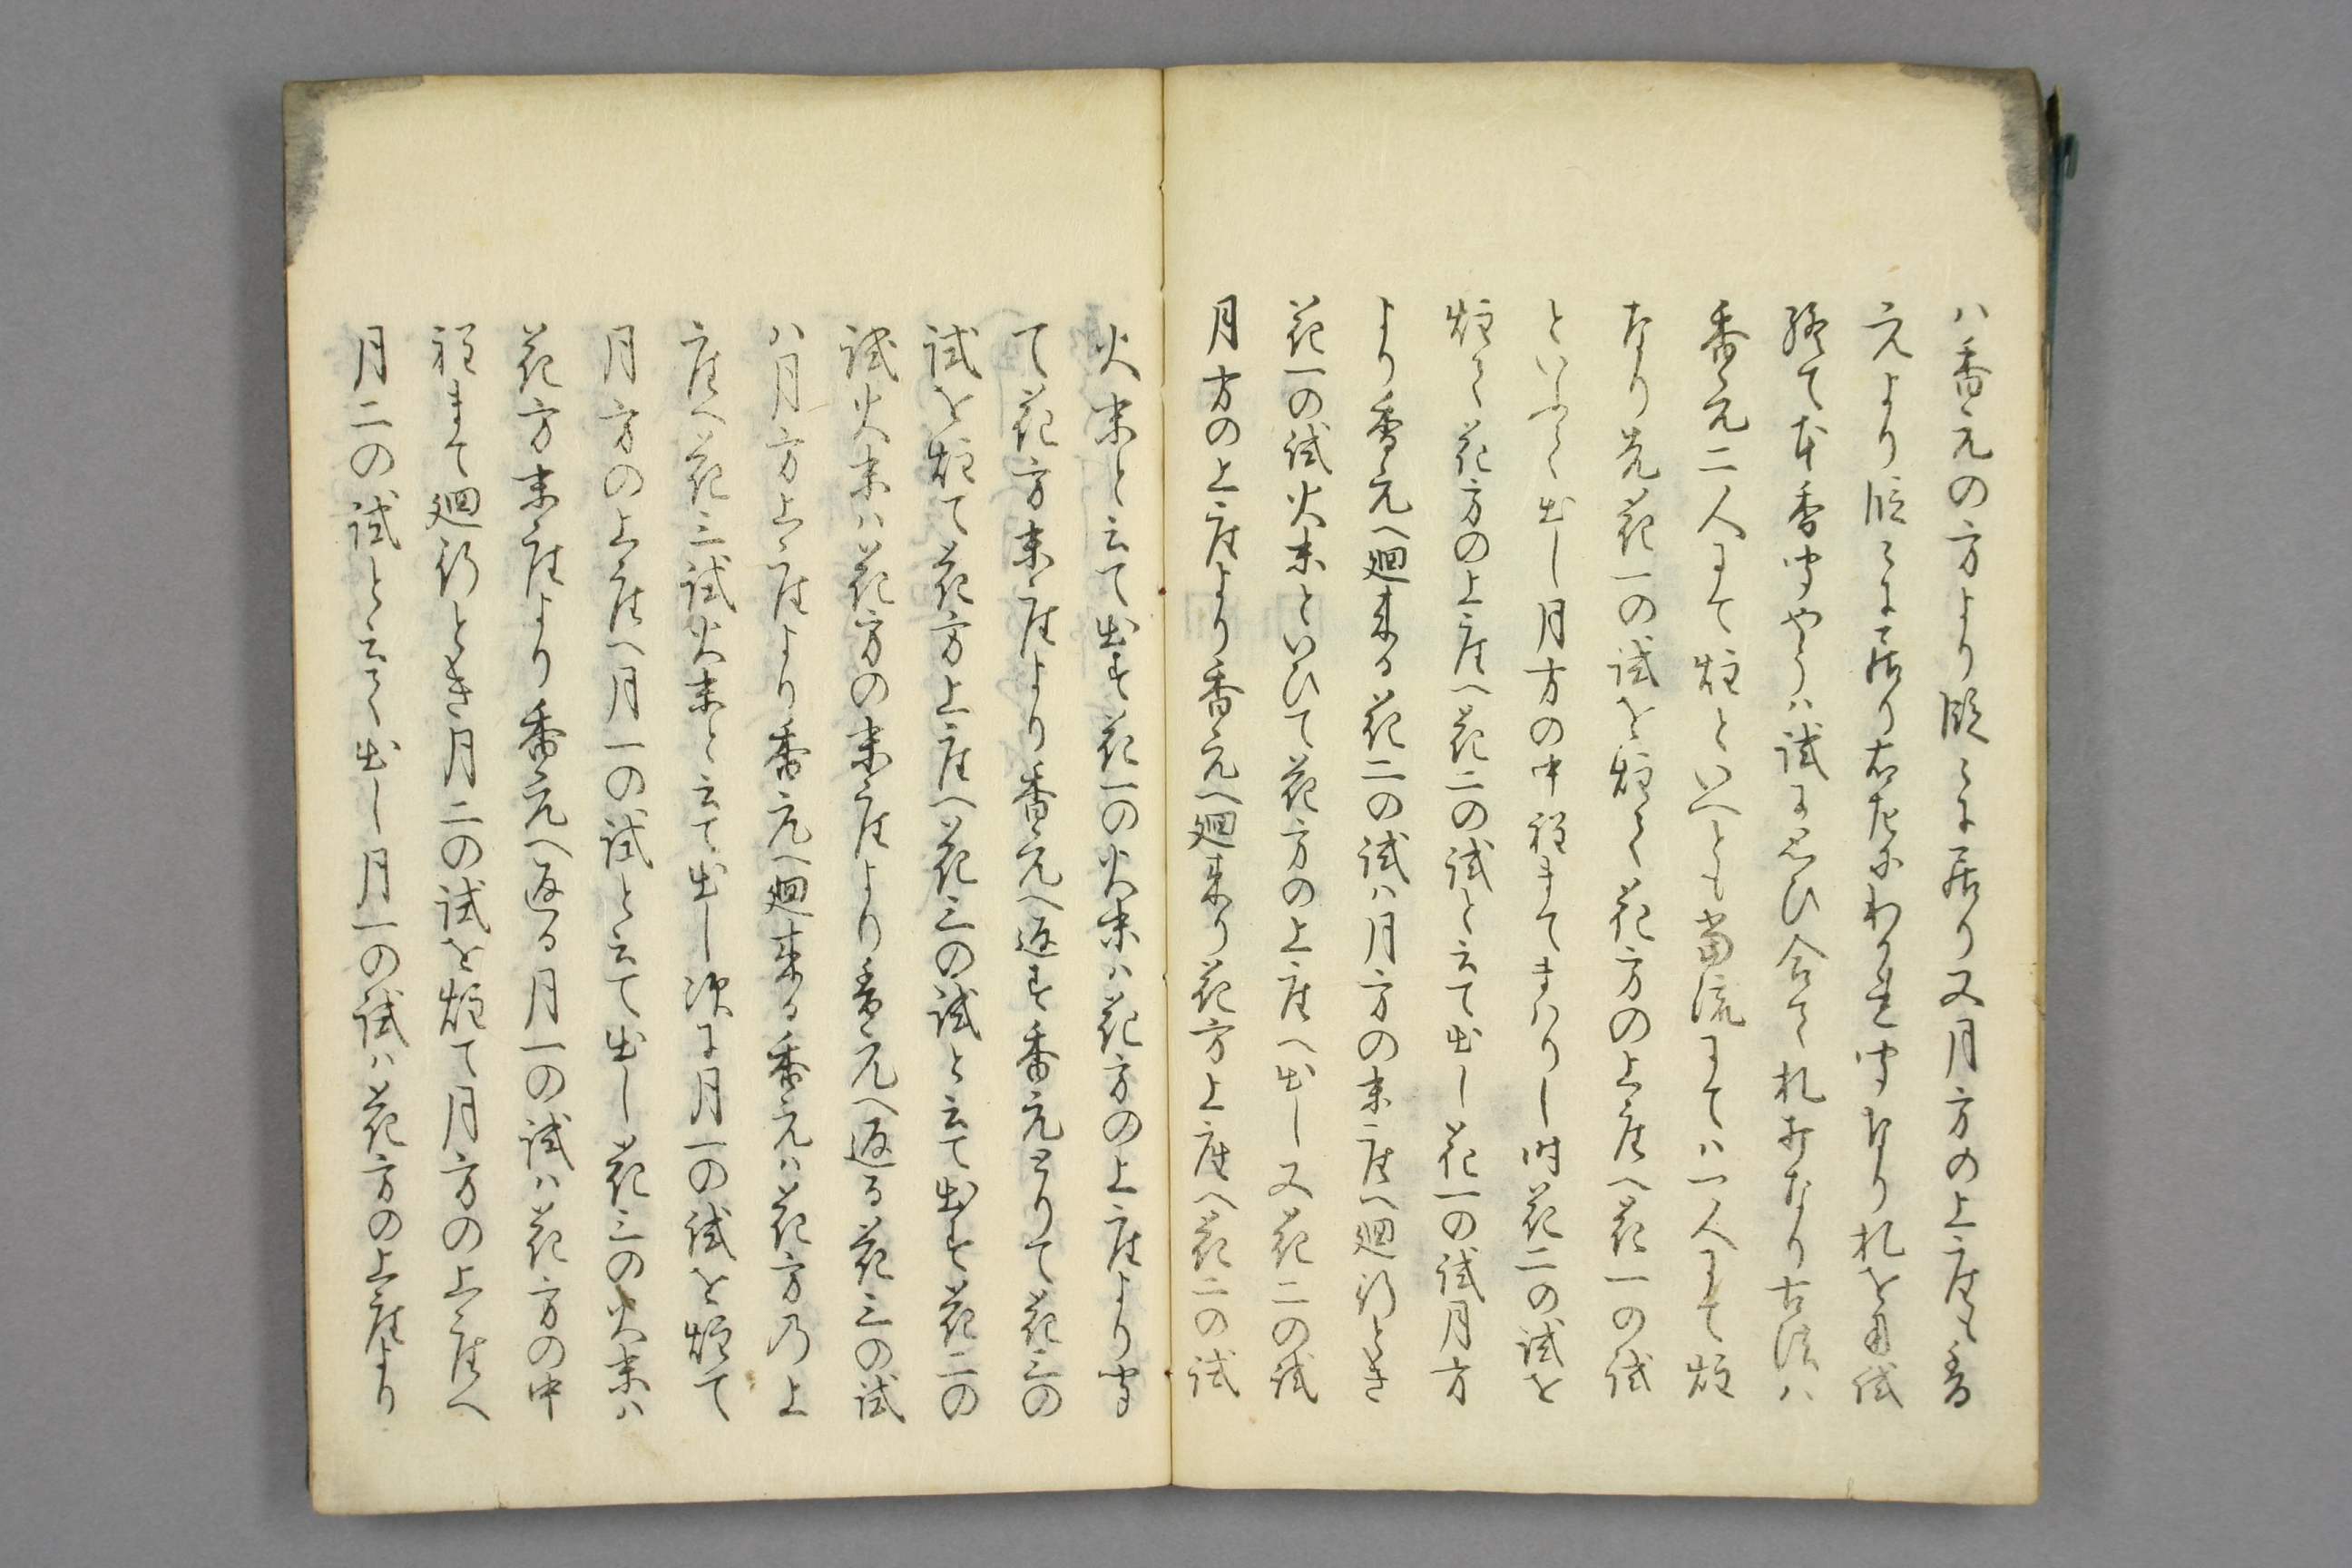 ハ香元の方より段々に居り又月方の上座も香
元より段々に居り右左にわかれ聞なり札を用試
終て本香聞やうハ試に思ひ合て札打なり古法ハ
香元二人にて炷といへとも当流にてハ一人にて炷
なり先花一の試を炷て花方の上座へ花一の試
といふて出し月方の中程まてまハりし時花二の試を
炷て花方の上座へ花二の試と云て出し花一の試月方
より香元へ廻来る花二の試ハ月方の末座へ廻行とき
花一の試火末といひて花方の上座へ出し又花二の試
月方の上座より香元へ廻来り花方上座へ花二の試
火末と云て出す花一の火末ハ花方の上座より聞
て花方末座より香元へ返す香元とりて花三の
試を炷て花方上座へ花三の試と云て出す花二の
試火末ハ花方の末座より香元へ返る花三の試
ハ月方上座より香元へ廻来る香元ハ花方乃上
座へ花三試火末と云て出し次に月一の試を炷て
月方の上座へ月一の試と云て出し花三の火末ハ
花方末座より香元へ返る月一の試ハ花方の中
程まて廻行とき月二の試を炷て月方の上座へ
月二の試と云て出し月一の試ハ花方の上座より